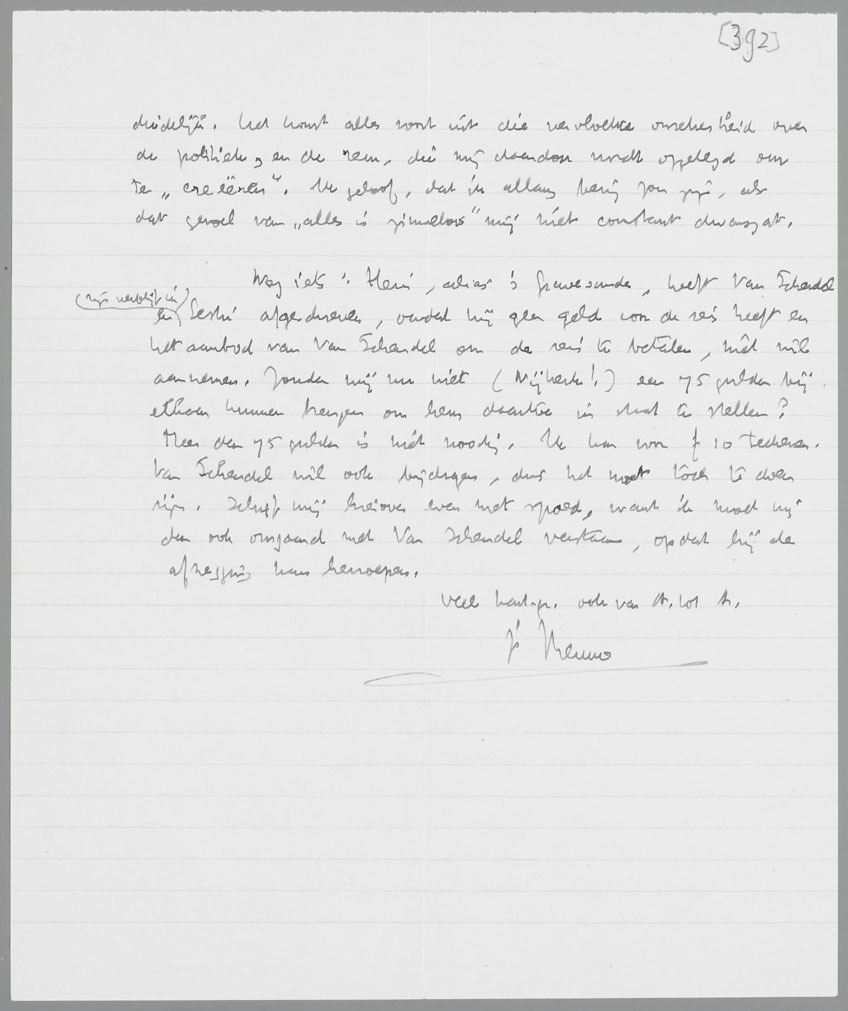 [392]
duidelijk. Het komt alles voort uit die vervloekte onzekerheid over
de politiek, en de rem, die mij daardoor wordt opgelegd om
te „creëeren". Ik geloof, dat ik allang bezig zou zijn, als
dat gevoel van „alles is zinneloos" mij niet constant dwarszat.
Nog iets: Henri, alias 's Gravesande, heeft Van Schendel
(zijn verblijf in)
en Sestri afgeschreven, omdat hij geen geld voor de reis heeft en
het aanbod van Van Schendel om de reis te betalen, niet wil
aannemen. Zouden wij nu niet (Nijkerk!) een 75 gulden bij
elkaar kunnen krengen om hem daartoe in staat te stellen?
Meer dan 75 gulden is niet noodig. Ik kan voor f 10 teekenen.
Van Schendel wil ook bijdragen, dus het moet toch te doen
zijn. Schrijf mij hierover even met spoed, want ik moet mij
dan ook omgaand met Van Schendel verstaan, opdat hij de
afzegging kan herroepen.
Veel hart.gr. ook van A. tot A.
je Menno